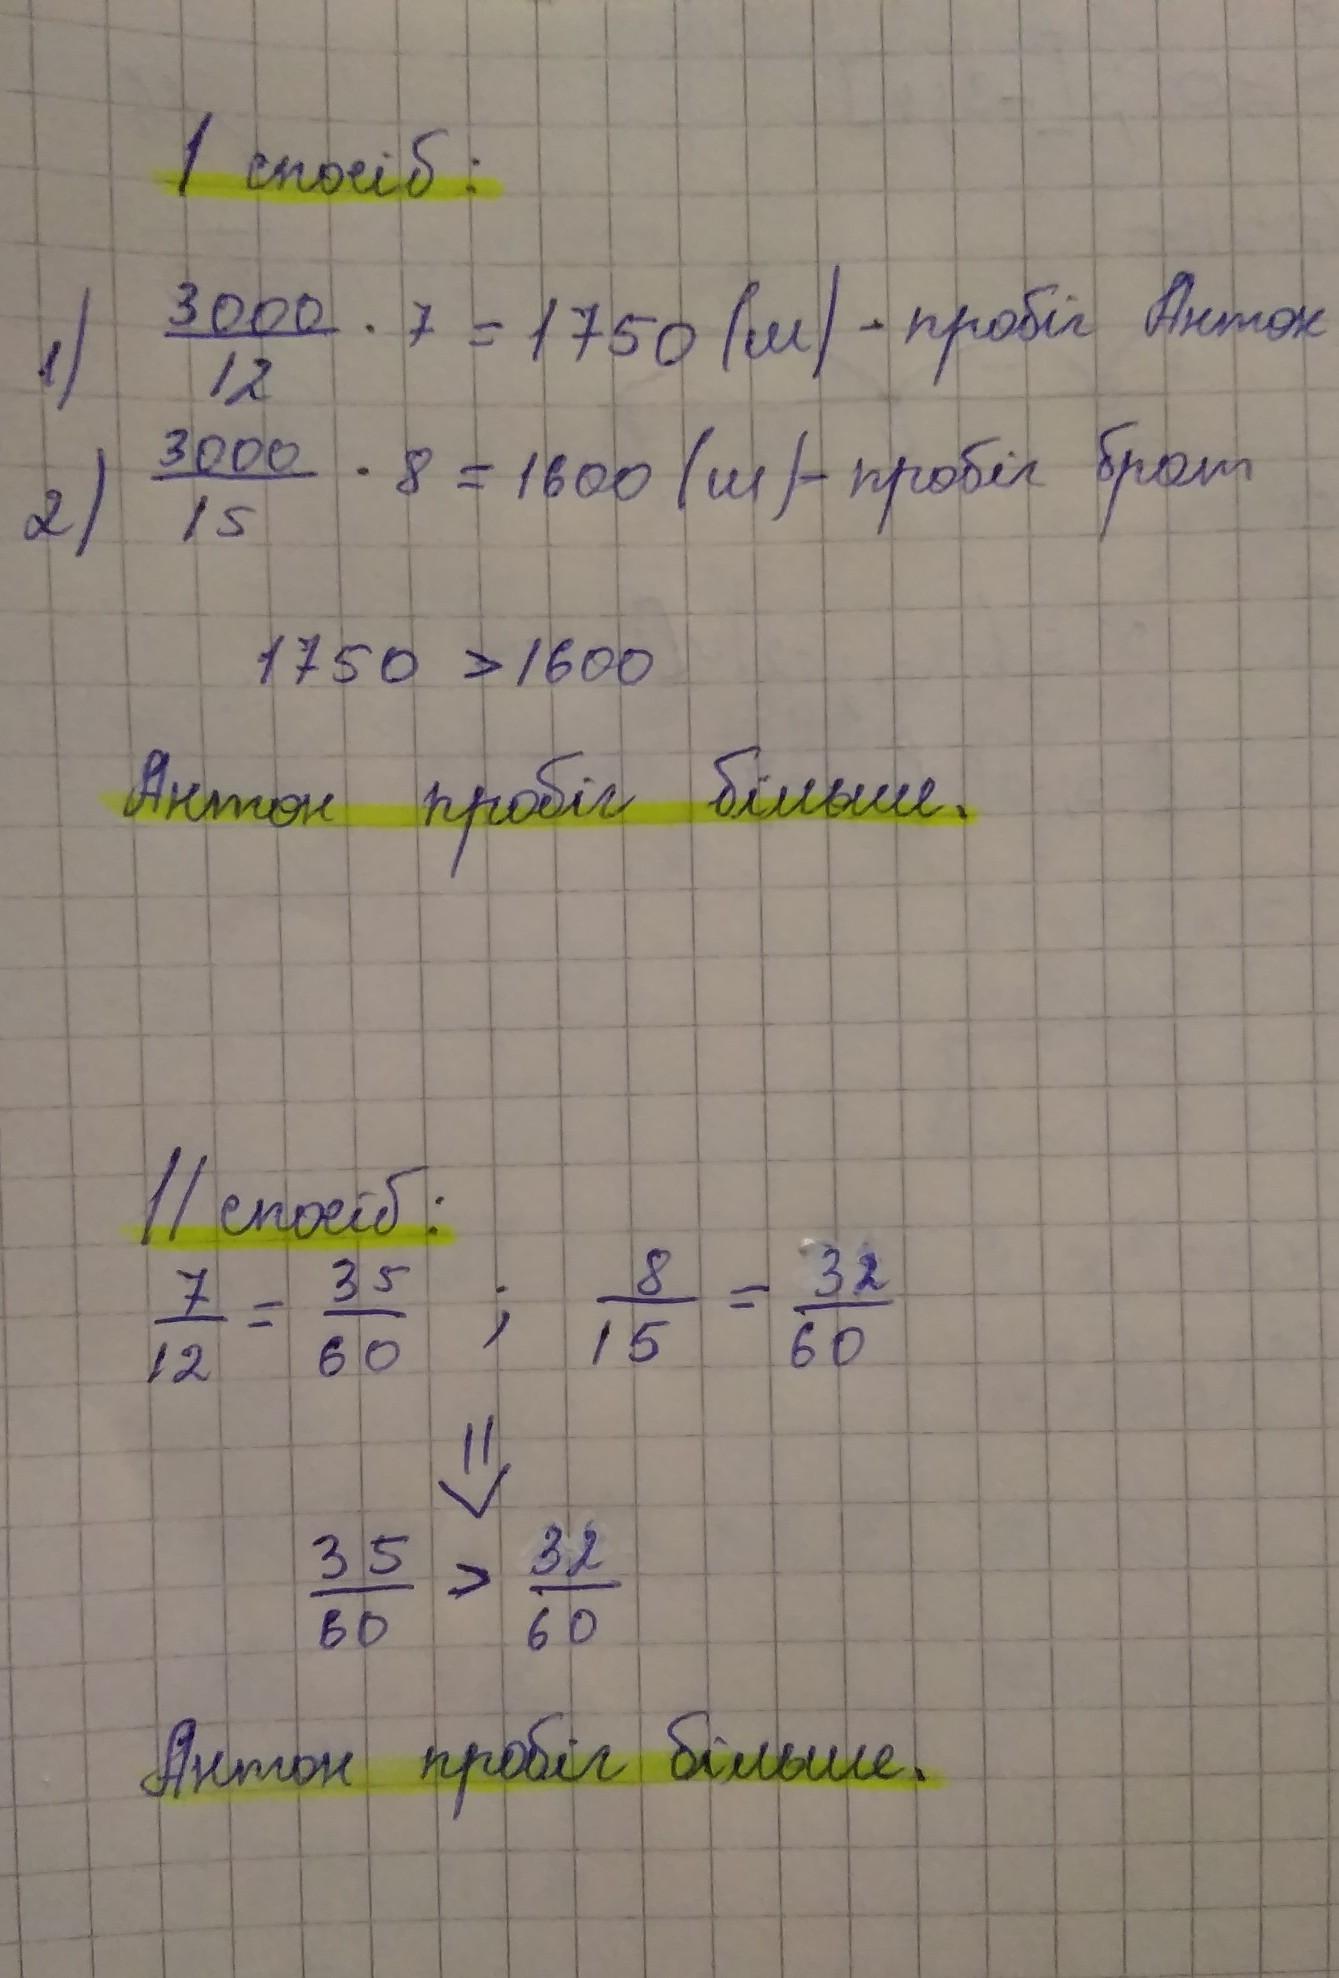 I спосіб:
1) 3000/12 · 7 = 1750 (м) - пробіг Антон
2) 3000/15 · 8 = 1600 (м) - пробіг брат
1750 > 1600
Антон пробіг більше.
II спосіб:
7/12 = 35/60 ; 8/15 = 32/60
⇓
35/60 > 32/60
Антон пробіг більше.